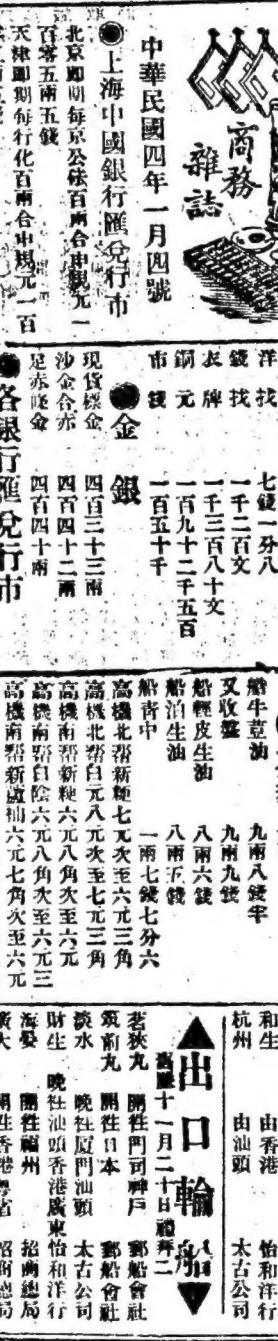 商務
雜誌
中華民國四年一月四號
●上海中國銀行匯兌行市
北京即期每京公砝百兩合申規元一
百零五兩五錢
天津即期每行化百兩合申規元一百
洋找 七錢一分八
錢找 一千二百文
衣牌 一千三百八十文
銅元 一百九十二千五百
市錢 一百五十千
●金銀
現貨標金 四百三十三兩
沙金合赤 四百四十二兩
足赤條金 四百四十兩
●各銀行匯兌行市
船牛荳油 九兩八錢半
又收盤 九兩九錢
船輕皮生油 八兩六錢
船泊生油 八兩五錢
船青中 一兩七錢七分六
高機北帮新粳七元次至六元三角
高機北帮白元八元次至七元三角
高機南帮新粳六元八角次至六元
高機南帮白陰六元八角次至六元三
高機南帮新 六元七角次至六元
和生 由香港 怡和洋行
杭州 由汕頭 太古公司
▲出口輪船▼
舊曆十一月二十日禮拜二
茗狹丸 開往門司神戶 郵船會社
筑前丸 開往日本 郵船會社
淡水 晚往厦門汕頭 太古公司
財生 晚往汕頭香港廣東 怡和洋行
海晏 開往福州 招商總局
廣大 開往香港粤省 招商總局